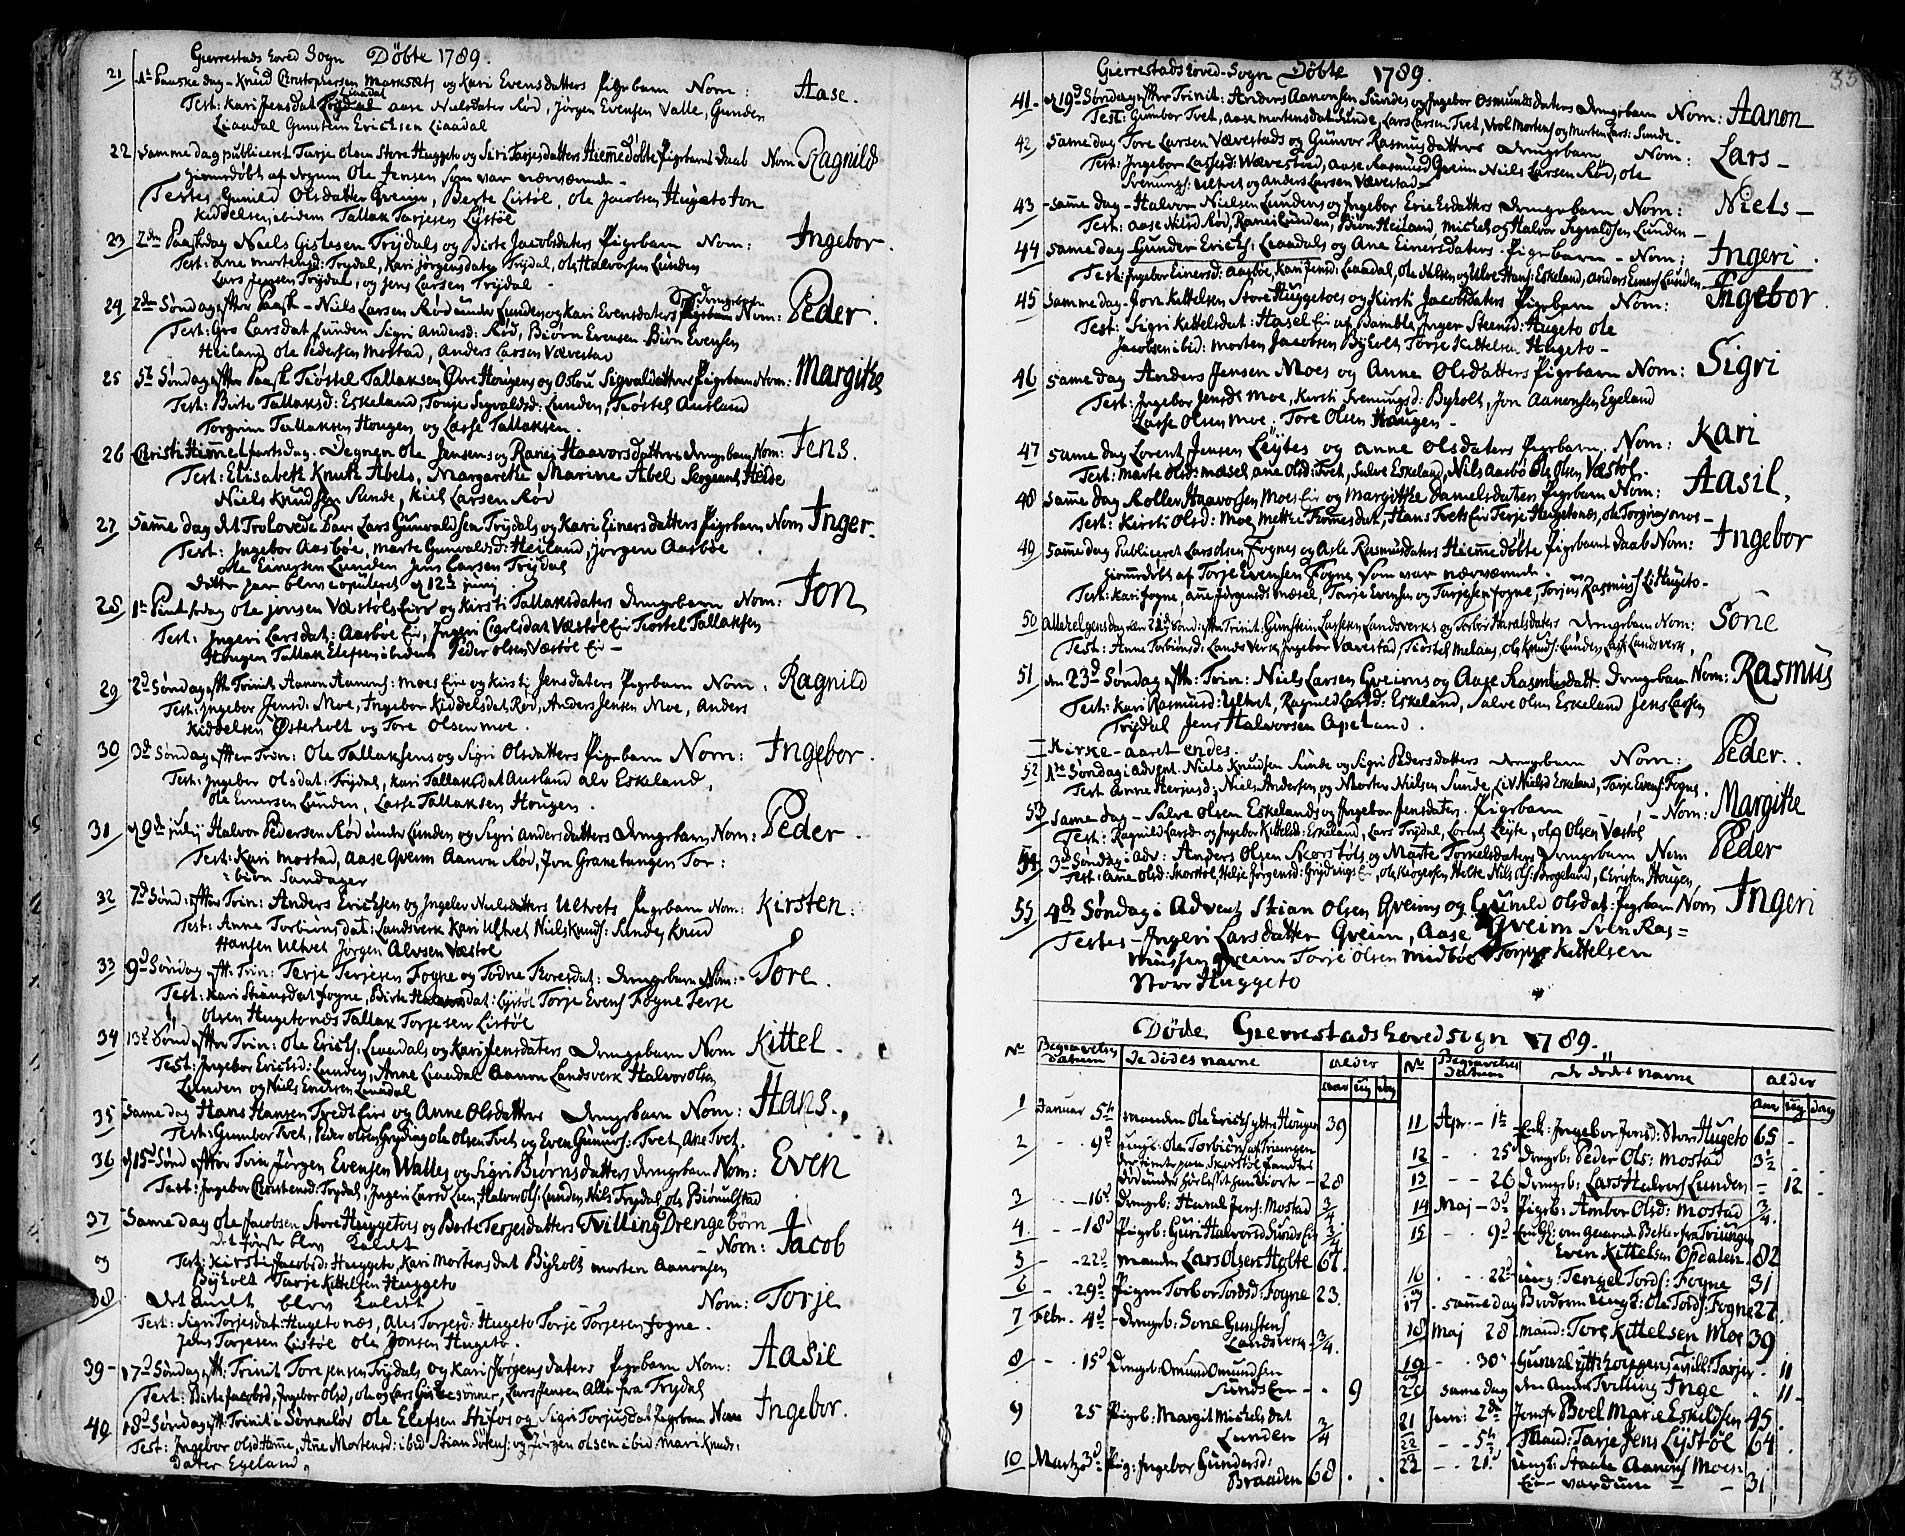 Gierrestads hoved Sogn Döbte 1789.
21 1te Paaske dag - Knud Christophersen Marksæts og Kari Evensdatters Pigebarn Nom: Aase.
Test: Kari Jensdat Liaadal Aase Nielsdater Röd, Jörgen Evensen Valle, Gunder
Liaadal Gunstein Erichsen Liaadal
22 Samme dag publiceret Tarje Olsen Store Huggeto og Siri Tarjesdatters Hiemmedöbte Pigebarns Daab Nom Ragnild
hiemedöbt af Degnen Ole Jensen som var nærværende -
Testes Gunild Olsdatter Gveim, Berte Listöl, Ole Jacobsen Hugeto Jon
Kiddelsen ibidem Tallak Tarjesen Lystöl
23 2den Paaskdag Niels Gislesen Trydals og Birte Jacobsdaters Pigebarn Nom: Ingebor.
Test: Ane Mortensd: Trydal, Kari Jörgensdater Trydal, Ole Halvorsen Lunden
Lars Jensen Trydal, og Jens Larsen Trydal -
24 2den Söndag efter Paask - Niels Larsen Röd under Lunden og Kari Evensdaters Drengebarn Nom: Peder.
Test: Gro Larsdat Lunden Sigri Andersd: Röd, Biörn Evensen Biön Evensen
Heiland Ole Pedersen Mostad, Anders Larsen Væverstad
25 5te Söndag efter Paask Tiöstel Tallaksen Öure Hougens og Oslou Sigvaldatters Pigebarn Nom: Margitke
Test: Birte Tallaksd: Eskeland, Tonje Segvaldsd: Lunden, Tiöstel Ausland
Torgrim Tallaksen Hougen og Lasse Tallaksen.
26 Christi Himmelfartsdag. Degnen Ole Jensens og Ranei Haavorsdatters Drengebarn Nom: Jens.
Test: Elisabeth Knuth Abels, Margarethe Marine Abel Sergeant Heide
Niels Knudsen Sunde, Kiel Larsen Röd
27 Samme dag det Trolovede Par Lars Gunvaldsen Trydals og Kari Einersdatters Pigebarn Nom Inger.
Test: Ingebor Aasböe, Marte Gunvaldsd: Heiland, Jörgen Aasböe
Ole Einersen Lunden Jens Larsen Trydal
Dette par blev copuleret d 12te Junij.
28 1te Pintsedag Ole Jonsen Væstöls Eie og Kirsti Tallaksdaters Drengebarn Nom: Jon
Test: Ingeri Larsdat: Aasböe Eie, Ingeri Carlsdat Væstöl Eie Tiöstel Tallaksen
Hougen Tallak Elefsen ibidem Peder Olsen Væstöl Eie -
29 2d Söndag efter Trinit Aanon Aanons: Moes Eie og Kirsti Jensdaters Pigebarn Nom. Ragnild
Test: Ingebor Jensd: Moe, Ingebor Kiddelsdat Röd, Anders Jensen Moe, Anders
Kiddelsen Österholt og Tore Olsen Moe.
30 3d Söndag efter Trin: Ole Tallaksens og Sigri Olsdatters Pigebarn Nom: Ingebor.
Test: Ingebor Olsdat: Trydal, Kari Tallaksdat Ausland Alv Eskeland,
Ole Einersen Lunden, Lasse Tallaksen Hougen.
31 d 9de Julij Halvor Pedersen Röd under Lunden og Sigri Andersdatters Drengebarn Nom: Peder.
Test: Kari Mostad, Aase Gveim Aanon Röd, Jon Granetangen Tor:
biön Sandager
32 7d Sönd: efter Trin: Anders Erichsen og Ingeler Nielsdatters Ultvets Pigebarn Nom: Kirsten.
Test: Anne Torbiönsdat: Landsverk Kari Ultvet Niels Knuds: Sunde, Knud
Hansen Ultvet Jörgen Alevsen Væstöl
33 9d Söndag eft: Trin: Terje Terjesen Fogne og Todne Thoresdat: Drengebarn Nom: Tore.
Test: Kari Stiansdat Fogne, Birte dat: Lystöl Torje Evens Fogne Terje
Olsen Hugetonæs Tallak Torjesen Listöl
34 13d Sönd efter Trin: Ole Erichs: Liaadals og Kari Jensdaters Drengebarn Nom Kittel.
Test: Ingebor Ericksd: Lunden, Anne Liaadal Aanon Landsverk Halvor Olsen
Lunden og Niels Endresen Liaadal
35 Same dag Hans Hansen Tvedt Eie og Anne Olsdatters Drengebarn Nom: Hans.
Test: Gumbor Tvet, Peder Olsen Gryding Ole Olsen Tvet og Even Gunurs: Tvet, Ane Tvet.
36 d 15d Sönd efter Trin Jörgen Evensen Walles og Sigri Biörnsdatters Drengebarn Nom: Even
Test: Ingebor Christensd: Trydal, Ingeri Larsd Lien, Halvor Ols: Lunden Nils Trydal Ole Biönulstad
37 Same dag Ole Jacobsen Store Huggetoes og Berte Terjesdatters Tvilling Drengebörn
det förste blev kaldet - Nom: Jacob
Test: Kirsti Jacobsd: Huggeto, Kari Mortensdat Byholt Morten Aanonsen
Byholt Tarje Kittelsen Huggeto
38 det Andet blev kaldet Nom: Torje
Test: Sigri Torjesdat: Hugetonæs, Ales Torjesd: Hugeto Torje Torjesen Fogne.
Jens Torjesen Listöl Ole Jonsen Hugeto.
39- 17d Söndag eft: Trinit Tore Jensen Trydals og Kari Jörgensdaters Pigebarn Nom: Aasil
Test: Birte Jacobsd, Ingebor Olsd, Ole og Lars Gislesönner, Lars Jensen Alle fra Trydal
40 18d Söndag eft: Trinit i Sönnelöv Ole Elefsen Hufos og Sigri Torjusdat Pigebarn Nom Ingebor.
Test: Ingebor Olsd: Hamre, Ane Mortensd: ibid Stian Sörens: og Jörgen Olsen ibid: Mari Knuds:
Dater Egeland.
Gierrestads hoved-Sogn Döbte 1789. 35
41- d 19d Söndag efter Trinit: Anders Aanonsen Sundes og Ingebor Osmundsdaters Drengebarn Nom: Aanon
Test: Gumbor Tvet, Aase Mortensdat Sunde, Lars Larsen Tvet, Vrol Mortens og Morten Lars: Sunde.
42 Same dag Tore Larsen Væverstads og Gunvor Rasmusdatters Drengebarn Nom: Lars -
Test: Ingebor Lassesd: Wæverstad, Aase Rasmusd Gveim Niels Larsen Röd, Ole
Svenungs: Ultvet og Anders Larsen Væverstad -
43 Same dag - Halvor Nielsen Lundens og Ingebor Ericksdatters Drengebarn Nom: Niels -
Test: Aase Nilsd Röd, Ranei Lunden, Biörn Heiland, Michel og Halvor Segvaldsen Lunden -
44 Same dag Gunder Erichs: Liaadals og Ane Einersdaters - Pigebarn - Nom: Ingeri.
Test: Ingebor Einersd: Aasböe, Kari Jensd: Liaadal, Ole Nilsen og Ulve Hans: Eskeland, Anders Einers Lunden
45 Samme dag - Jorn Kittelsen Store Huggetoes og Kirsti Jacobsdaters Pigebarn Nom: Ingebor.
Test: Sigri Kittelsdat: Hasel Eie af Bamble, Inger Steensd: Hugeto Ole
Jacobsen ibid: Morten Jacobsen Byholt Torje Kittelsen Hugeto -
46 Same dag Anders Jensen Moes og Anne Olsdatters Pigebarn Nom: Sigri
Test: Ingebor Jensd: Moe, Kirsti Svenungsd: Byholt, Jon Aanonsen Egeland
Lasse Olsen Moe, Tore Olsen Haugen -
47 Same dag Lorent Jensen Leytes og Anne Olsdaters Pigebarn, Nom: Kari
Test: Marte Olsd: Mæsel, Ane Olsd: Tvet, Salve Eskeland, Nils Aasbö Ole Olsen Væstöl.
48 Same dag Rollev Haavorsen Moes Eie og Margitke Danielsdaters Pigebarn Nom: Aasil.
Test: Kirsti Olsd: Moe, Mette Tommesdat, Hans Tvets Eie Terje Hugetonæs, Ole Torgrims Moe -
49 Same dag Publiceret Lars Olsen Fognes og Asle Rasmusdaters Hiemedöbte Pigebarns Daab Nom: Ingebor
hiemedöbt af Torje Evensen Fogne, som var nærværende.
Test: Kari Fogne, Ane Jörgensd: Mæsel, Tarje Evensen og Tarjesen Fogne, Torjus Rasmus: Li Hugeto -
50 Allehelgensdag den 21de Sönd: efter Trinit: Gunstein Lassesen Landsverks og Torbor Haralsdaters Drengebarn Nom: Söne
Test: Anne Torbiönsd: Landsverk Ingebor Væverstad, Tiöstel Melaas, Ole Knuds: Lunden Lasse Landsverk.
51 den 23d Söndag eft: Trin: Niels Larsen Gveims og Aase Rasmusdatt. Drengebarn Nom: Rasmus
Test: Kari Rasmusd: Ultvet, Ragnild Larsd: Eskeland, Salve Olsen Eskeland Jens Lassen
Trydal Jens Halvorsen Apeland.
Kirke-aaret endes.
52 1te Söndag i Advent. Niels Knudsen Sunde og Sigri Pedersdatters Drengebarn Nom: Peder.
Test Anne Herjusd: Niels Andersen, og Morten Nielsen Sunde, Liv Nielsd Eskeland, Tarje Evens: Fogne.
53 Same dag - Salve Olsen Eskelands og Ingebor Jensdater. Pigebarn - Nom: Margitte
Test: Ragnild Larsd: og Ingebor Kittelsd: Eskeland, Lars Trydal, Lorent Leyte, Ole Olsen Væstöl
54 3d Söndag i Adv: Anders Olsen Skorstöls og Marte Torkelsdaters Drengebarn Nom Peder
Test: Ane Olsd: Skorstöl, Helje Jörgensd: Grydings Eie, Ole Holte Nils Ols: Brogeland, Christen Hougen,
55 4de Söndag i Advent Stian Olsen Gveims og Gunild Olsdat: Pigebarn Nom Ingeri
Testes - Ingeri Larsdatter Gveim, Aase Gveim Sven Ras=
mussen Gveim Torje Olsen Midböe Torje Kittelsen
Store Huggeto
Döde Gierrestads hovedsogn 1789.
No Begravelses Datum De Dödes navne alder No Begravelses Datum De Dödes navne alder
aar ug dag aar ug dag
1 Januar 5te Manden Ole Erichs: ytre Hougen 39
2 - - 9d Ungk: Ole Torbiöns: af Triungen
28
3 - - 16d Drengb: Haral Jens: Mostad 3/4
4 - - 18d Pigeb: Guri Halvorsd Sunds Eie 3/4
5 - 22d Manden Lars Olsen Holte 67.
6 - - 29d Pigen Torbor Tordsd: Fogne 23.
7 Febr. 4d Drengb: Sone Gunstens
Landsverk 3/4.
8 - 15d Drengb: Osmund Omundsen
Sunds Eie - 9
9 25 Pigeb: Margit Michelsdat
Lunden 3/4
10 Martz 3d Pig: Ingebor Gundersd:
Braaden 68
11 Apr. - 1te Enk: Ingebor Jonsd: Store Hugeto 65 -
12 - 25 Drengb: Peder Ols: Mostad 3½
13 - - 26 Drengb: Lars Halvors Lunden - 12
14 Maj - 3d Pigeb: Ambor Olsd: Mostad 3/4
15 - 9d fra Triungen
Even Kittelsen Opdalen 82
16 - 22d Ung: Tengel Tords: Fogne 31
17 samme dag Broderen Ungk: Ole Tords: Fogne 27.
18 Maj 28 Mand: Tore Kittelsen Moe 39
19 - 30 11
20 samme dag den Anden Tvilling Inge 11 -
21 Juni 2den Jomfr Boel Marie Eskildsen 45.
22 - - 5te Mand: Tarje Jens Lystöl 64
23 - - 21d Ungk: Staale Aanons Moes
Eie - Vardum - 31